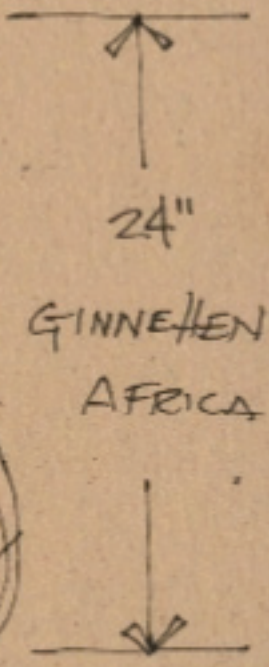 24"
GINNEHEN
AFRICA